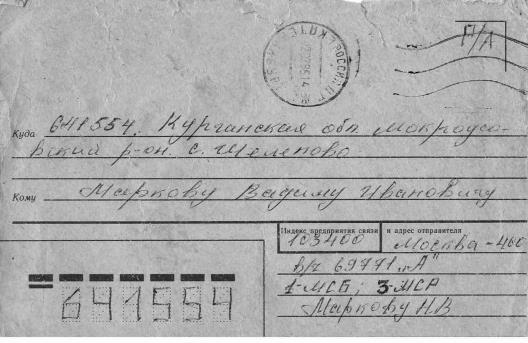 П/А
РОССИЯ
Куда 641554. Курганская обл. Мокроусо-
вский р-он. с. Шелепово
Кому Маркову Вадиму Ивановичу
Индекс предприятия связи и адрес отправителя
103400 Москва-400
в/ч 69771 "А"
1-МСБ; 3-МСР
Маркову Н В
641554